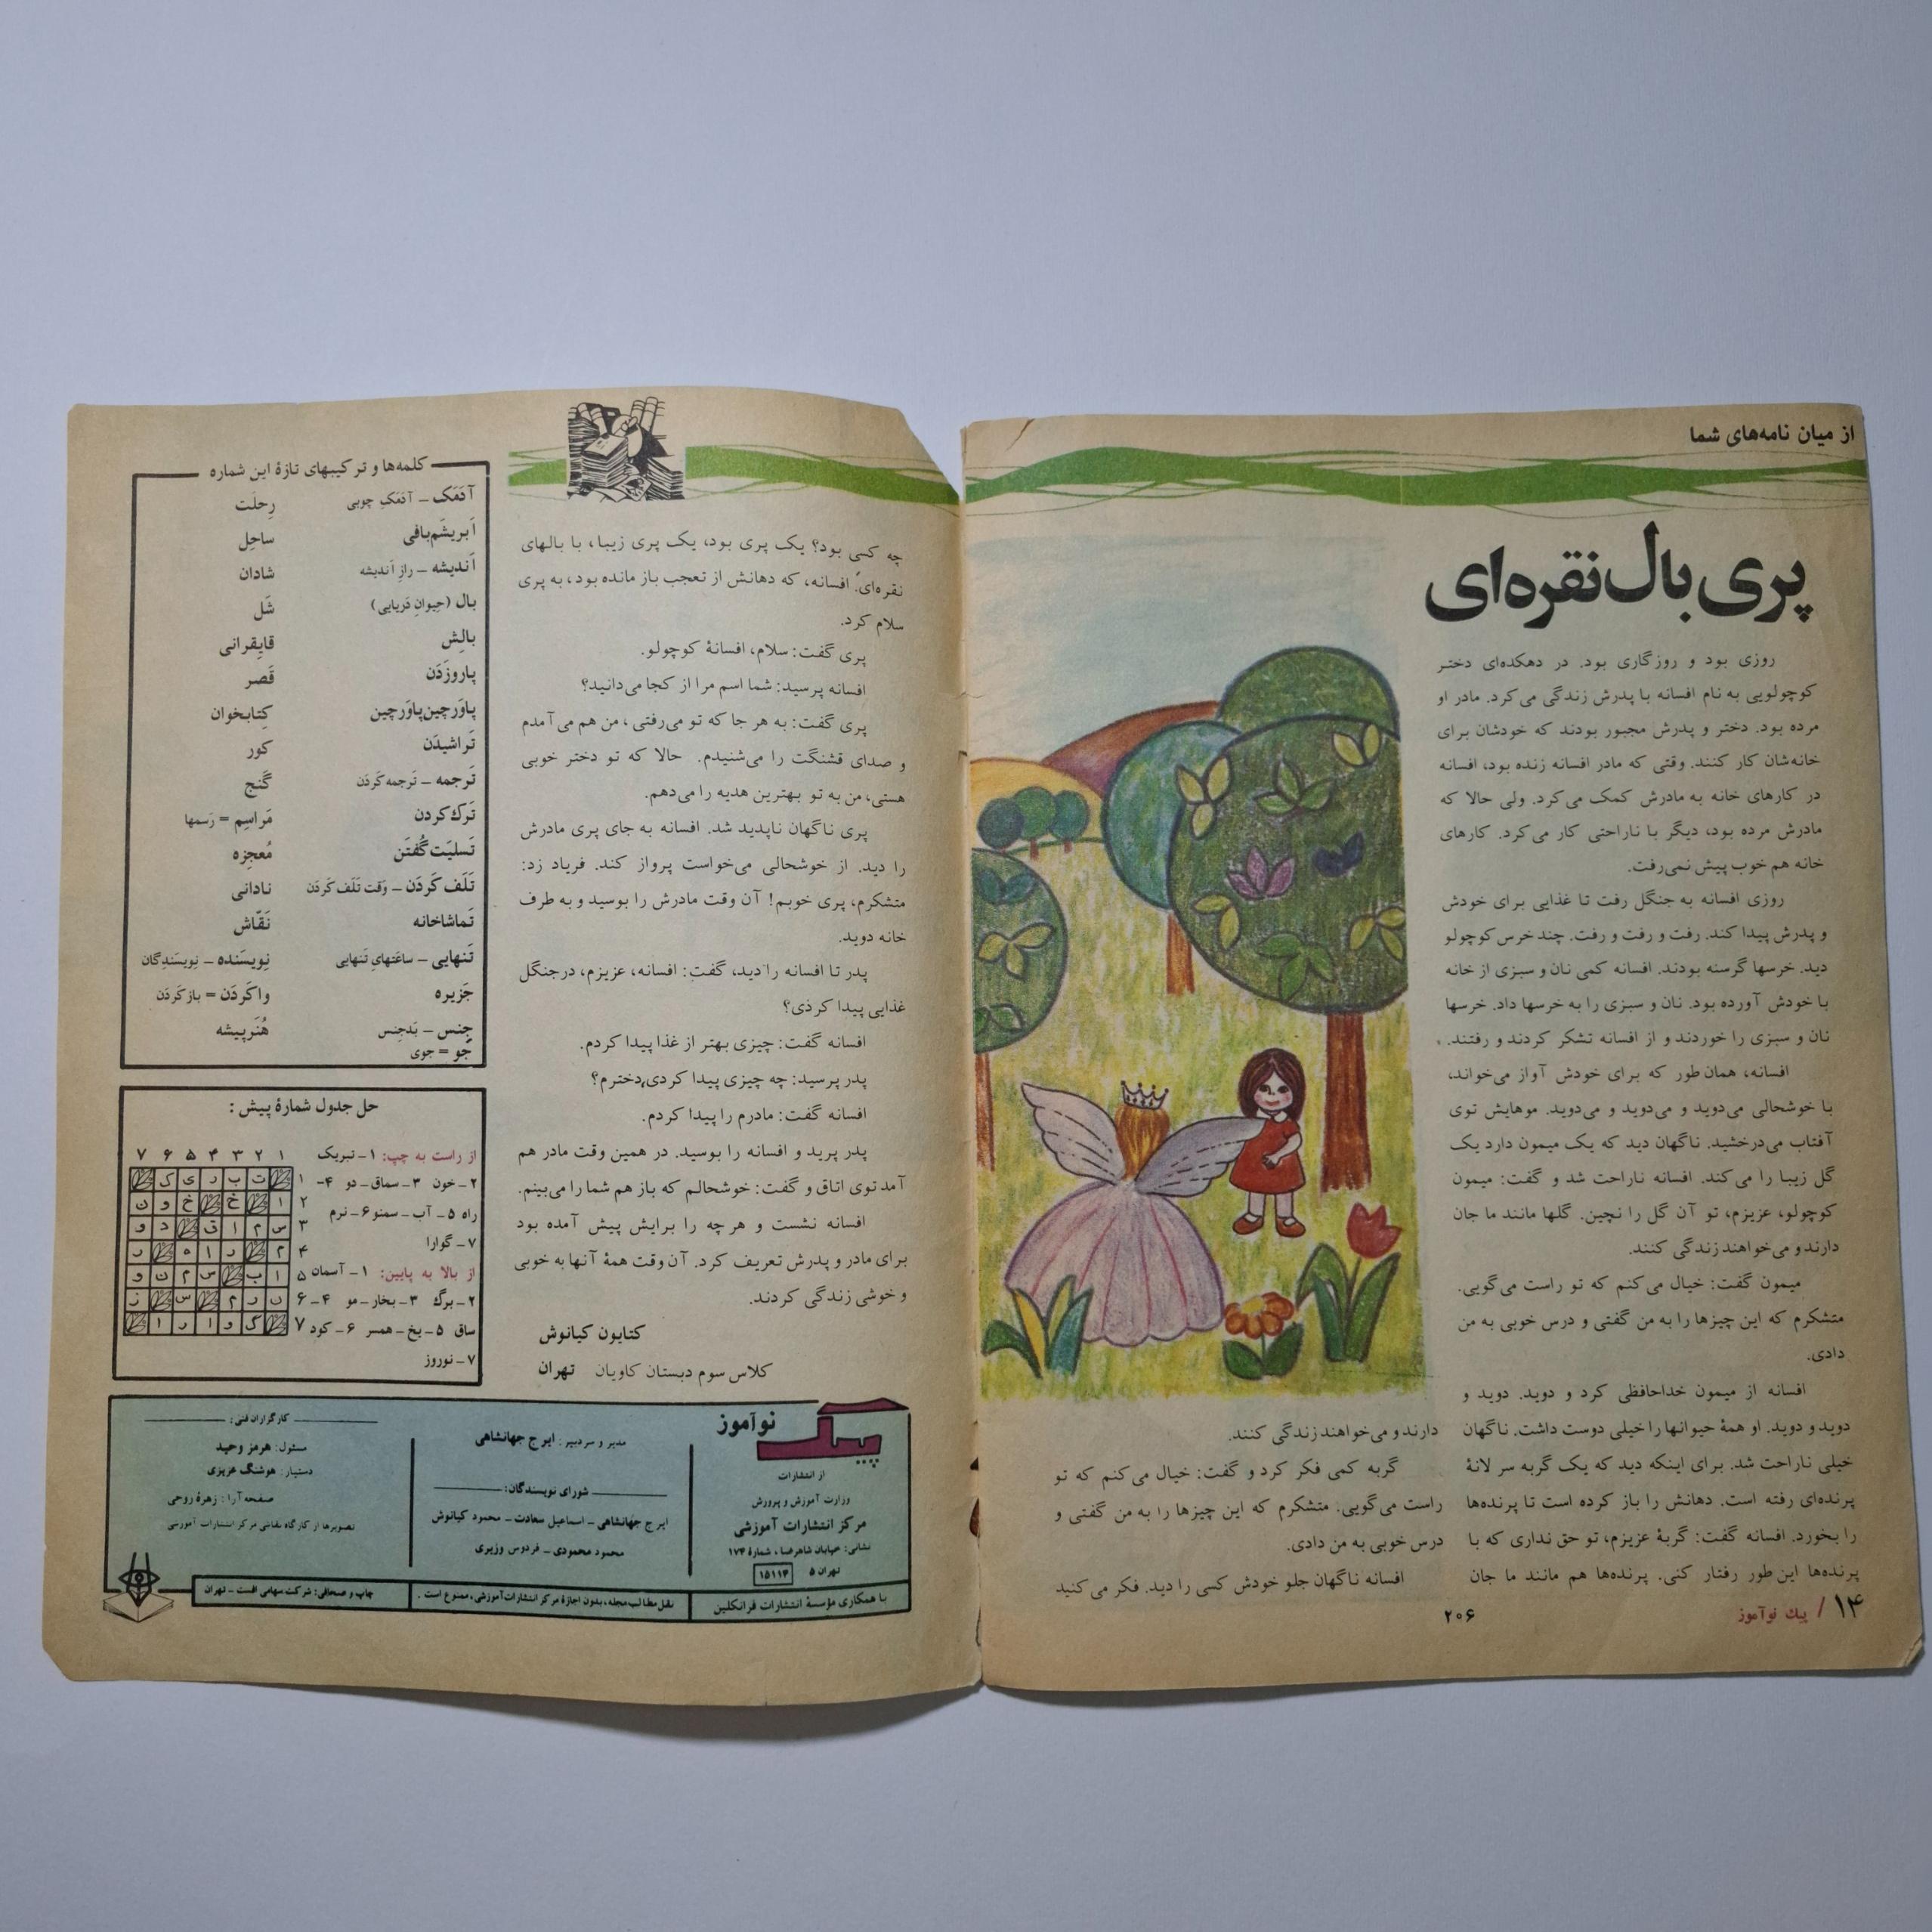 از میان نامه‌های شما
پری بال نقره‌ای
روزی بود و روزگاری بود. در دهکده‌ای دختر
کوچولویی به نام افسانه با پدرش زندگی می‌کرد. مادر او
مرده بود. دختر و پدرش مجبور بودند که خودشان برای
خانه‌شان کار کنند. وقتی که مادر افسانه زنده بود، افسانه
در کارهای خانه به مادرش کمک می‌کرد. ولی حالا که
مادرش مرده بود، دیگر با ناراحتی کار می‌کرد. کارهای
خانه هم خوب پیش نمی‌رفت.
روزی افسانه به جنگل رفت تا غذایی برای خودش
و پدرش پیدا کند. رفت و رفت و رفت. چند خرس کوچولو
دید. خرسها گرسنه بودند. افسانه کمی نان و سبزی از خانه
با خودش آورده بود. نان و سبزی را به خرسها داد. خرسها
نان و سبزی را خوردند و از افسانه تشکر کردند و رفتند.
افسانه، همان طور که برای خودش آواز می‌خواند،
با خوشحالی می‌دوید و می‌دوید و می‌دوید. موهایش توی
آفتاب می‌درخشید. ناگهان دید که یک میمون دارد یک
گل زیبا را می‌کند. افسانه ناراحت شد و گفت: میمون
کوچولو، عزیزم، تو آن گل را نچین. گلها مانند ما جان
دارند و می‌خواهند زندگی کنند.
میمون گفت: خیال می‌کنم که تو راست می‌گویی.
متشکرم که این چیزها را به من گفتی و درس خوبی به من
دادی.
افسانه از میمون خداحافظی کرد و دوید. دوید و
دوید و دوید. او همهٔ حیوانها را خیلی دوست داشت. ناگهان
خیلی ناراحت شد. برای اینکه دید که یک گربه سر لانهٔ
پرنده‌ای رفته است. دهانش را باز کرده است تا پرنده‌ها
را بخورد. افسانه گفت: گربهٔ عزیزم، تو حق نداری که با
پرنده‌ها این طور رفتار کنی. پرنده‌ها هم مانند ما جان
دارند و می‌خواهند زندگی کنند.
گربه کمی فکر کرد و گفت: خیال می‌کنم که تو
راست می‌گویی. متشکرم که این چیزها را به من گفتی و
درس خوبی به من دادی.
افسانه ناگهان جلو خودش کسی را دید. فکر می‌کنید
۱۴ / پیك نوآموز
۲۰۶
چه کسی بود؟ یک پری بود، یک پری زیبا، با بالهای
نقره‌ای. افسانه، که دهانش از تعجب باز مانده بود، به پری
سلام کرد.
پری گفت: سلام، افسانهٔ کوچولو.
افسانه پرسید: شما اسم مرا از کجا می‌دانید؟
پری گفت: به هر جا که تو می‌رفتی، من هم می‌آمدم
و صدای قشنگت را می‌شنیدم. حالا که تو دختر خوبی
هستی، من به تو بهترین هدیه را می‌دهم.
پری ناگهان ناپدید شد. افسانه به جای پری مادرش
را دید. از خوشحالی می‌خواست پرواز کند. فریاد زد:
متشکرم، پری خوبم! آن وقت مادرش را بوسید و به طرف
خانه دوید.
پدر تا افسانه را دید، گفت: افسانه، عزیزم، در جنگل
غذایی پیدا کردی؟
افسانه گفت: چیزی بهتر از غذا پیدا کردم.
پدر پرسید: چه چیزی پیدا کردی، دخترم؟
افسانه گفت: مادرم را پیدا کردم.
پدر پرید و افسانه را بوسید. در همین وقت مادر هم
آمد توی اتاق و گفت: خوشحالم که باز هم شما را می‌بینم.
افسانه نشست و هر چه را برایش پیش آمده بود
برای مادر و پدرش تعریف کرد. آن وقت همهٔ آنها به خوبی
و خوشی زندگی کردند.
کتایون کیانوش
کلاس سوم دبستان کاویان تهران
کلمه‌ها و ترکیبهای تازهٔ این شماره
آدَمَک – آدَمَکِ چوبی
اَبریشَم‌بافی
اَندیشه – رازِ اَندیشه
بال (حِیوانِ دَریایی)
بالِش
پاروزَدَن
پاوَرچین‌پاوَرچین
تَراشیدَن
تَرجمه – تَرجمه کَردَن
تَرك کردن
تَسلیَت گُفتَن
تَلَف کَردَن – وَقت تَلَف کَردَن
تَماشاخانه
تَنهایی – ساعَتهایِ تَنهایی
جَزیره
جِنس – بَدجِنس
جو = جوی
رِحلَت
ساحِل
شادان
شَل
قایِقرانی
قَصر
کِتابخوان
کور
گَنج
مَراسِم = رَسمها
مُعجِزه
نادانی
نَقّاش
نِویسَنده – نِویسَندِگان
واکَردَن = بازکَردَن
هُنَرپیشه
حل جدول شمارهٔ پیش :
از راست به چپ: ۱– تبریک
۲– خون ۳– سماق– دو ۴–
راه ۵– آب– سمنو ۶– نرم
۷– گوارا
از بالا به پایین: ۱– آسمان
۲– برگ ۳– بخار– مو ۴–
ساق ۵– یخ– همسر ۶– کود
۷– نوروز
۱ ۲ ۳ ۴ ۵ ۶ ۷
۱ ت ب ر ی ک
۲ ا خ خ و ن
۳ س م ا ق د و
۴ م ر ا ه ر
۵ ا ب س م ن و
۶ ن ر م س ز
۷ گ و ا ر ا
پیک نوآموز
از انتشارات
وزارت آموزش و پرورش
مرکز انتشارات آموزشی
نشانی: خیابان شاهرضا، شمارهٔ ۱۷۴
تهران ۵ ۱۵۱۱۴
با همکاری مؤسسهٔ انتشارات فرانکلین
مدیر و سردبیر: ایرج جهانشاهی
شورای نویسندگان:
ایرج جهانشاهی – اسماعیل سعادت – محمود کیانوش
محمود محمودی – فردوس وزیری
نقل مطالب مجله، بدون اجازهٔ مرکز انتشارات آموزشی، ممنوع است.
کارگزاران فنی:
مسئول: هرمز وحید
دستیار: هوشنگ عزیزی
صفحه‌آرا: زهره روحی
تصویرها از کارگاه نقاشی مرکز انتشارات آموزشی
چاپ و صحافی: شرکت سهامی افست – تهران